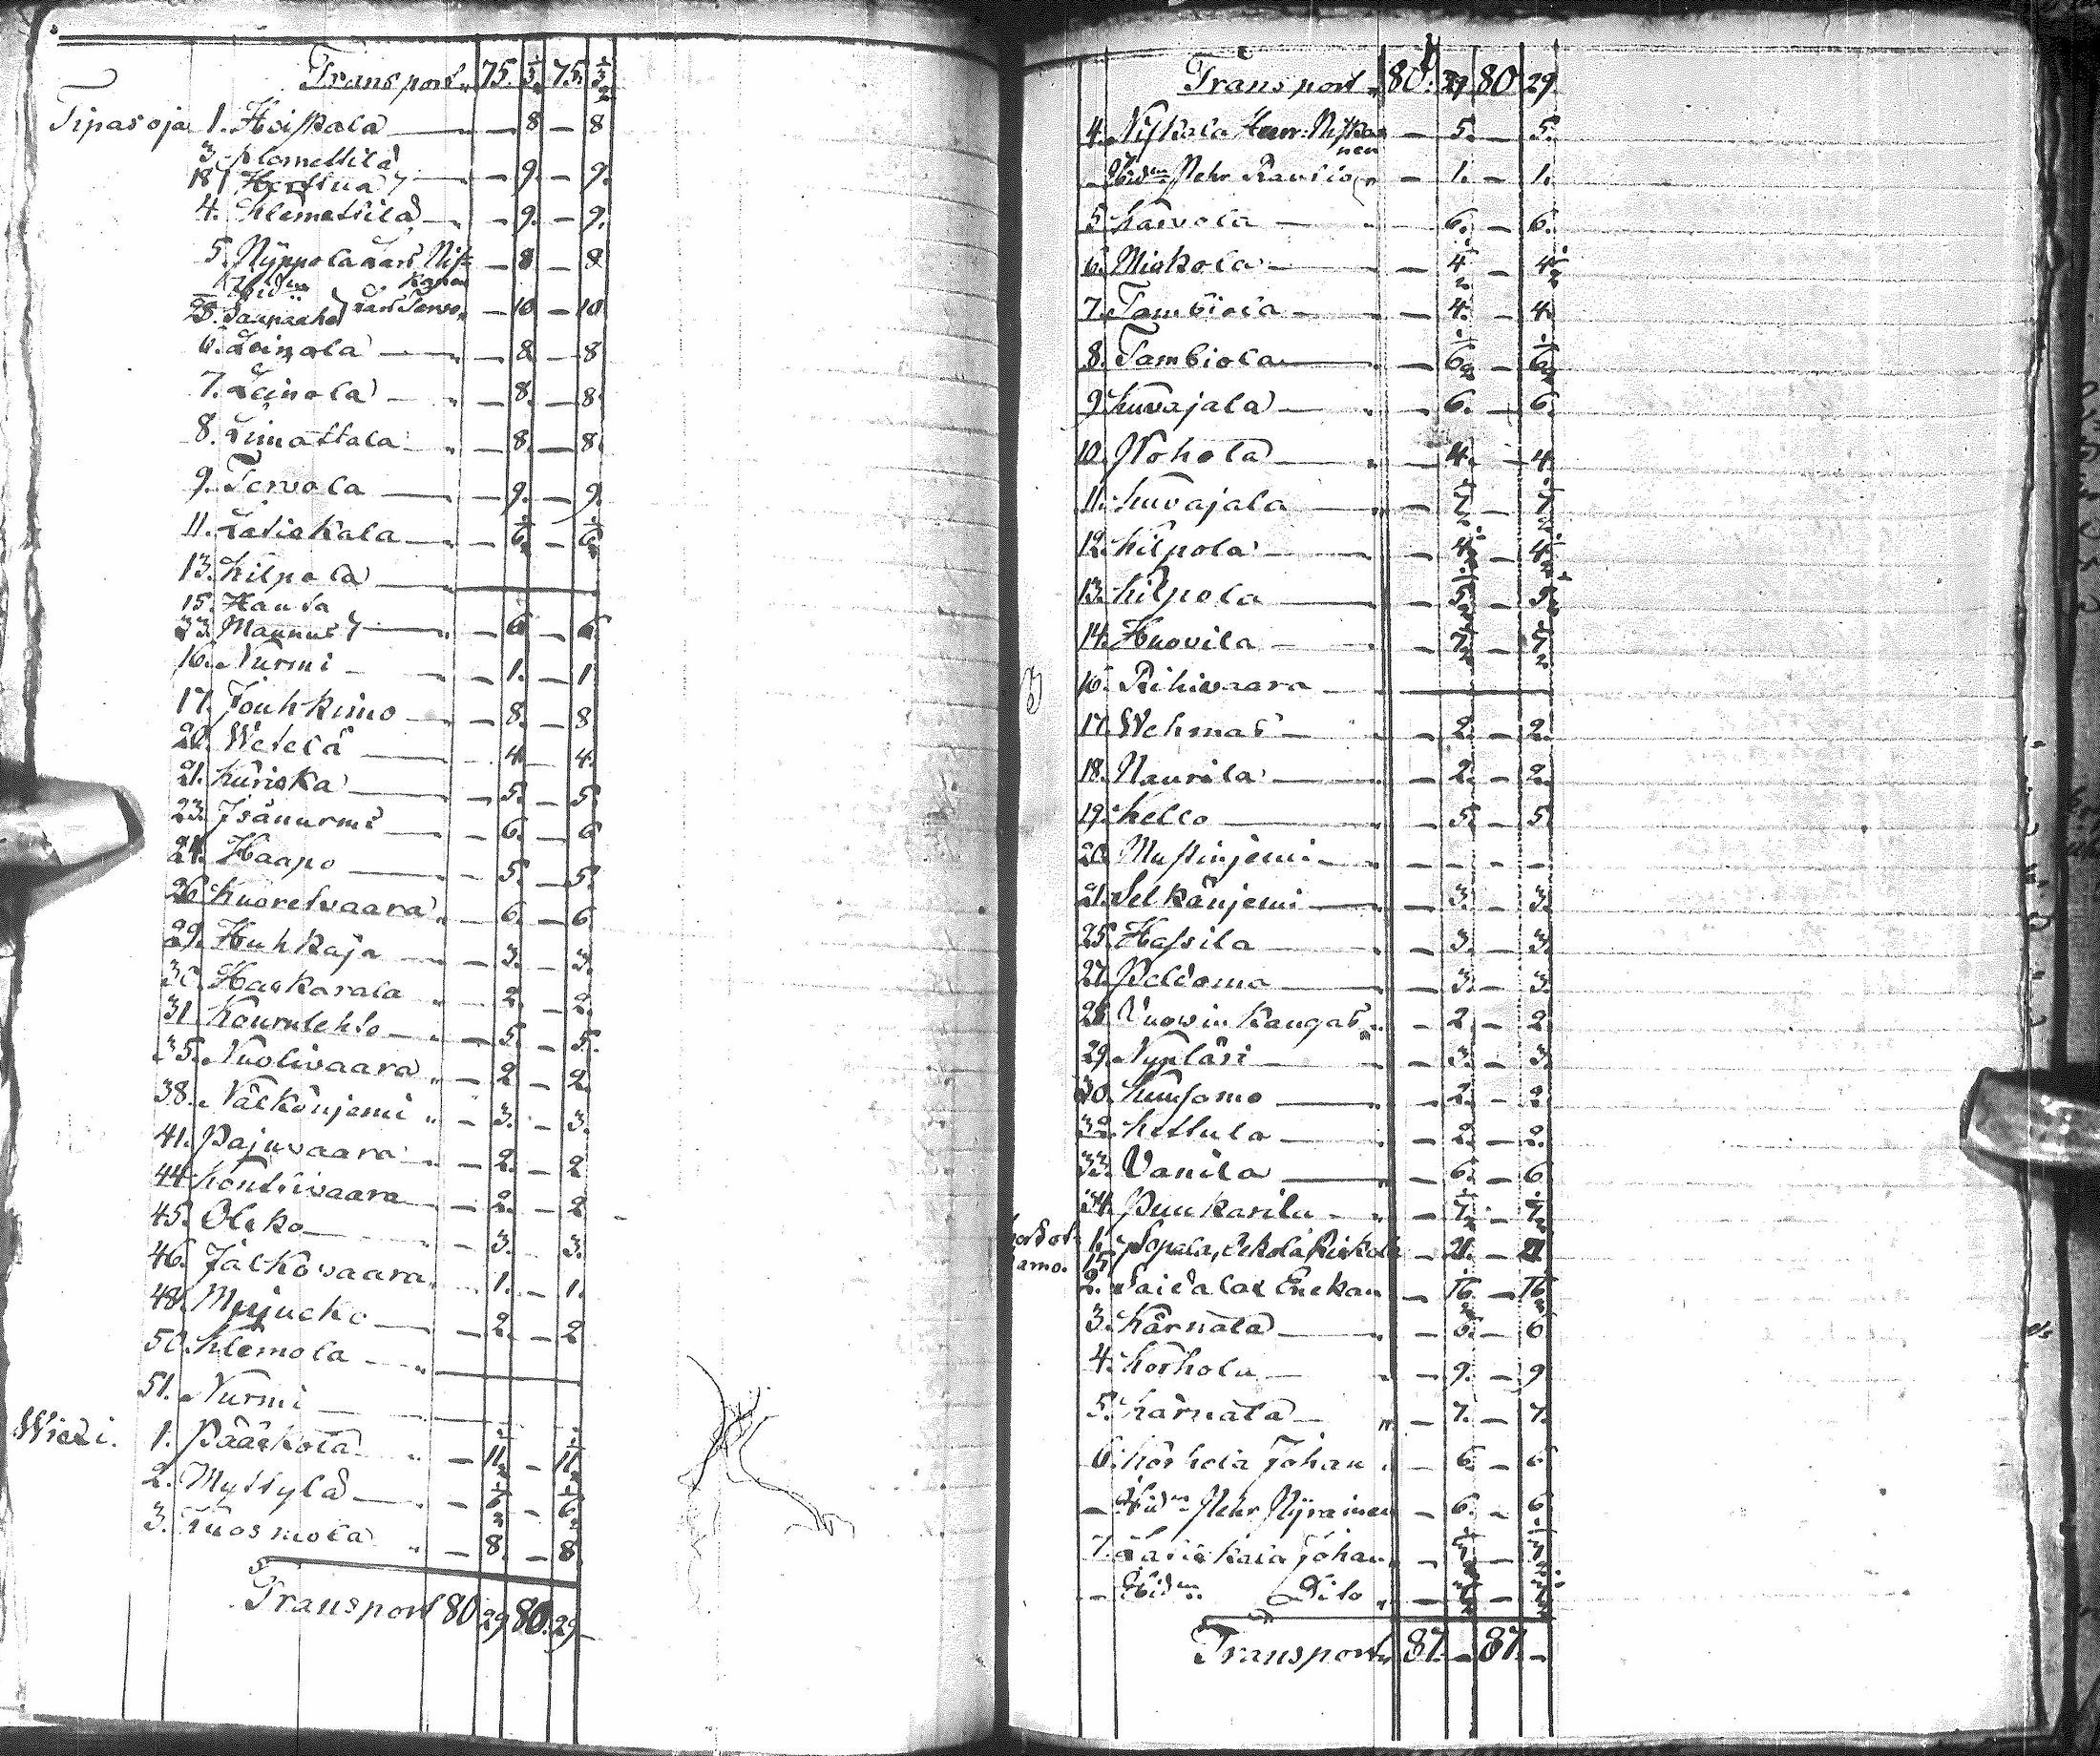 Transport 75. 3½ 75. 3½
Tipasoja 1. Heiskala — 8 — 8
3. Klemettilä
18. Herttua — 9. — 9.
4. Klemettilä — 9. — 9.
5. Nyppola Lars Nis= — 8 — 8
kanen
28. Lars Tervo — 10 — 10
6. Leinola — 8 — 8
7. Leinola — 8. — 8
8. Limattala — 8. — 8.
9. Tervola — 9. — 9.
11. Latickala — 6½ — 6½
13. Kilpola —
15. Hauta
33. Maunus — 6 — 6
16. Nurmi — 1. — 1
17. Jouhkimo — 8. — 8
20. Wetelä — 4. — 4.
21. Kuricka — 5. — 5.
23. Isänurmi — 6. — 6
24. Haapo — 5. — 5.
26. Kuoretvaara — 6. — 6
29. Huhkaja — 3. — 3.
30. Haukarala — 2. — 2.
31. Kourulehto — 5. — 5.
35. Nuolivaara — 2 — 2.
38. Nälkönjemi — 3. — 3.
41. Pajuvaara — 2. — 2
44. Kontiivaara — 2. — 2
45. — 3. 3.
46. Jälkövaara — 1. — 1.
48. — 2. — 2
50. Klemola —
51. Nurmi —
Wiexi. 1. Pääskölä — 11½ — 11½
2. Myttylä — 6½ — 6½
3. Kuosmola — 8. — 8.
Transport 80 29 80. 29
Transport 80. 29 80 29.
4. Niskala Henr. Niska — 5. — 5.
nen
— Hidm Pehr — 1. — 1.
5. Karvola — 6. — 6.
6. Mickola — 4½ — 4½
7. Tambiola — 4. — 4.
8. Tambiola — 6½ — 6½
9. Kuvajala — 6. — 6.
10. Wohola — 4. — 4.
11. Kuvajala — 7½ — 7½
12. Kilpola — 4½ — 4½
13. Kilpola — 5½ — 5½
14. Huovila — 7½ — 7½
16. Rihivaara —
17. Wehmas — 2. — 2.
18. Naurila — 2. — 2.
19. Kello — 5. — 5
20. Mustinjemi — - - -
21. Selkänjemi — 3. — 3.
25. Hassila — 3. — 3.
27. Peldoma — 3. — 3.
28. Vuowinkangas — 2 — 2
29. — 3. — 3
30. Kuusamo — 2. — 2
32. Kettula — 2. — 2.
33. Vanila — 6. — 6
34. Puukarila — 7½ — 7½
amo. 1. 15. Sopala, — 21. — 21
2. Saidala — 16½ — 16½
3. Kärnälä — 6. — 6
4. Korhola — 9. — 9
5. Kärnälä — 7. — 7.
6. Korhola Johan — 6. — 6
— Hidm Pehr Myrainen — 6. — 6
7. Latickala Johan — 7½ — 7½
— Hidm Dito — 7½ — 7½
Transport 87. — 87. —